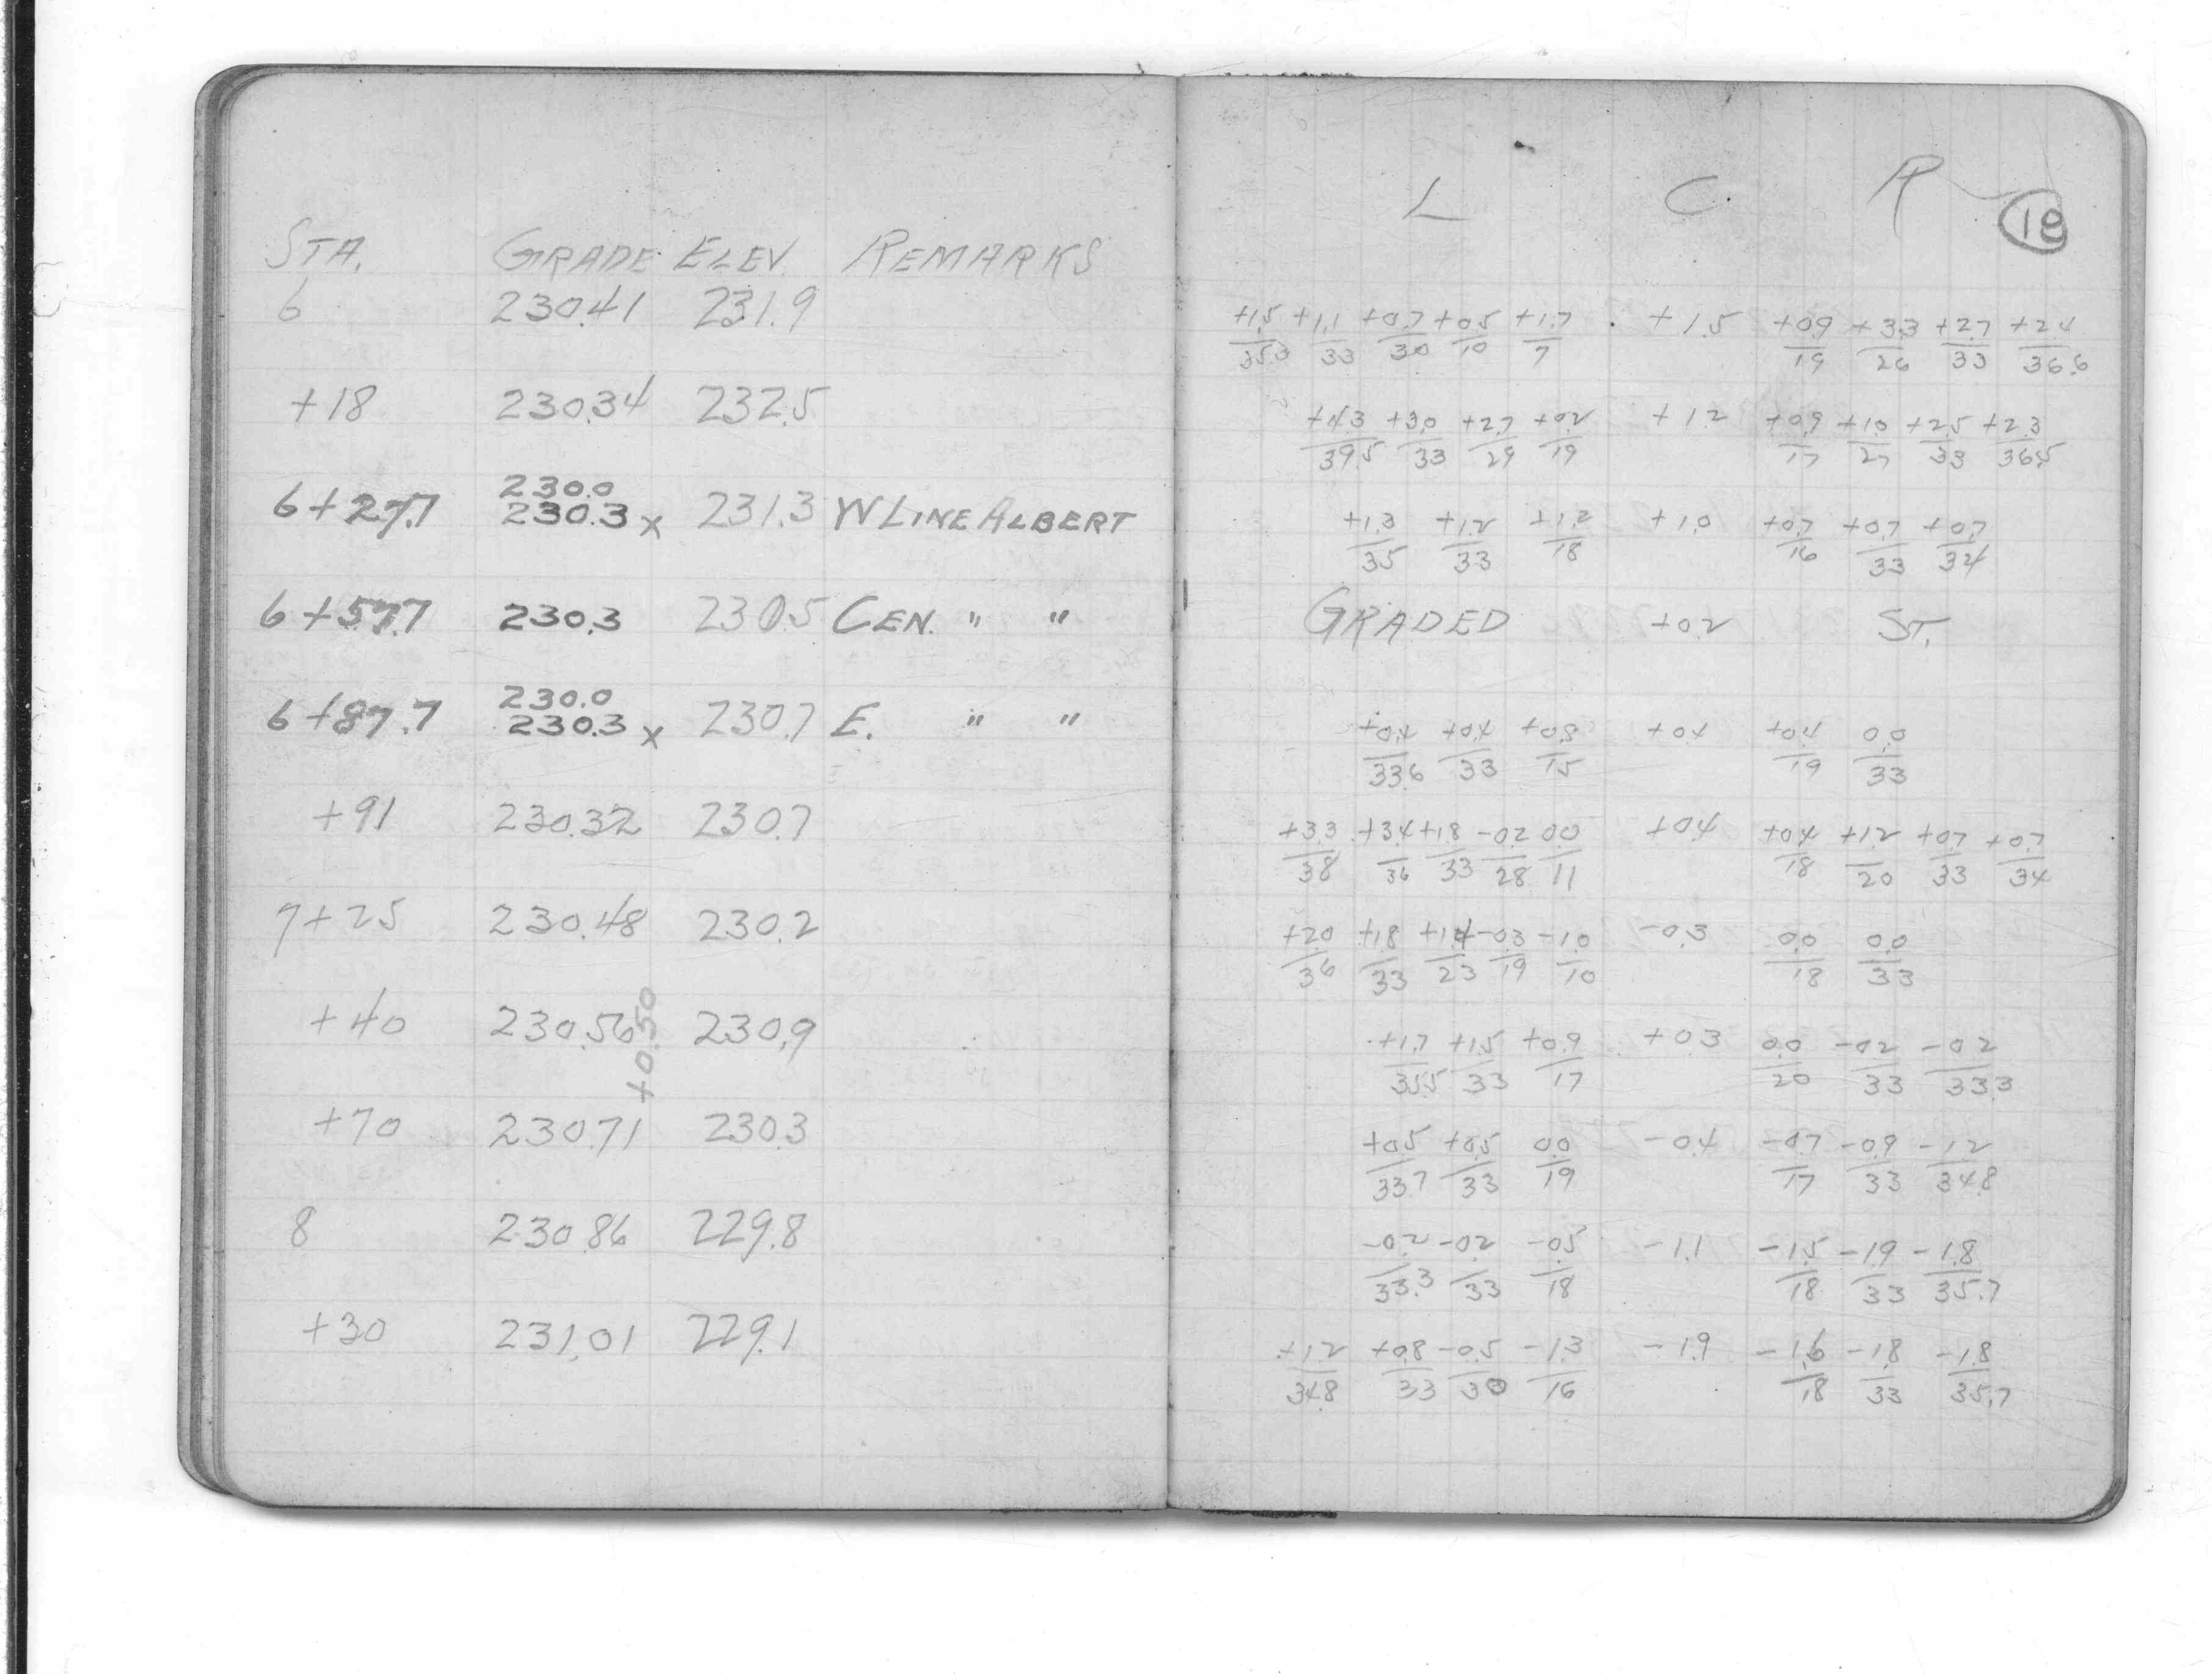 L C. R 18
STA. GRADE ELEV. REMARKS
6 230.41 231.9
+1.5 +1.1 +0.7 +0.5 +1.7 +1.5 +0.9 +3.3 +2.7 +2.4
35.3 33 30 10 7 19 26 33 36.6
+18 230.34 232.5
+4.3 +3.0 +2.7 +0.2 +1.2 +0.9 +1.0 +2.5 +2.3
39.5 33 29 19 17 27 33 36.5
230.0
6+27.7 230.3 x 231.3 W LINE ALBERT
+1.3 +1.2 +1.2 +1.0 +0.7 +0.7 +0.7
35 33 18 16 33 34
6+57.7 230.3 230.5 CEN. " "
GRADED +0.2 ST.
230.0
6+87.7 230.3 x 230.7 E. " "
+0.4 +0.4 +0.8 +0.4 +0.4 0.0
33.6 33 15 19 33
+91 230.32 230.7
+3.3 +3.4 +1.8 -0.2 0.0 +0.4 +0.4 +1.2 +0.7 +0.7
38 36 33 28 11 18 20 33 34
7+25 230.48 230.2
+2.0 +1.8 +1.4 -0.3 -1.0 -0.3 0.0 0.0
36 33 23 19 10 18 33
+40 230.56 230.9
+0.50
+1.7 +1.5 +0.9 +0.3 0.0 -0.2 -0.2
35.5 33 17 20 33 33.3
+70 230.71 230.3
+0.5 +0.5 0.0 -0.4 -0.7 -0.9 -1.2
33.7 33 19 17 33 34.8
8 230.86 229.8
-0.2 -0.2 -0.5 -1.1 -1.5 -1.9 -1.8
33.3 33 18 18 33 35.7
+30 231.01 229.1
+1.2 +0.8 -0.5 -1.3 -1.9 -1.6 -1.8 -1.8
34.8 33 30 16 18 33 35.7